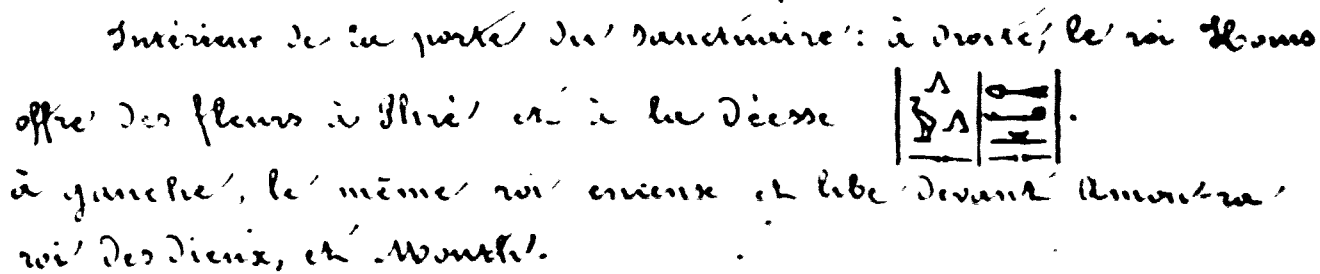 Intérieur de la porte du sanctuaire : à droite, le roi Horus
offre des fleurs à Phré et à la Déesse
à gauche, le même roi encense et libe devant Amon-ra
roi des Dieux, et Month.